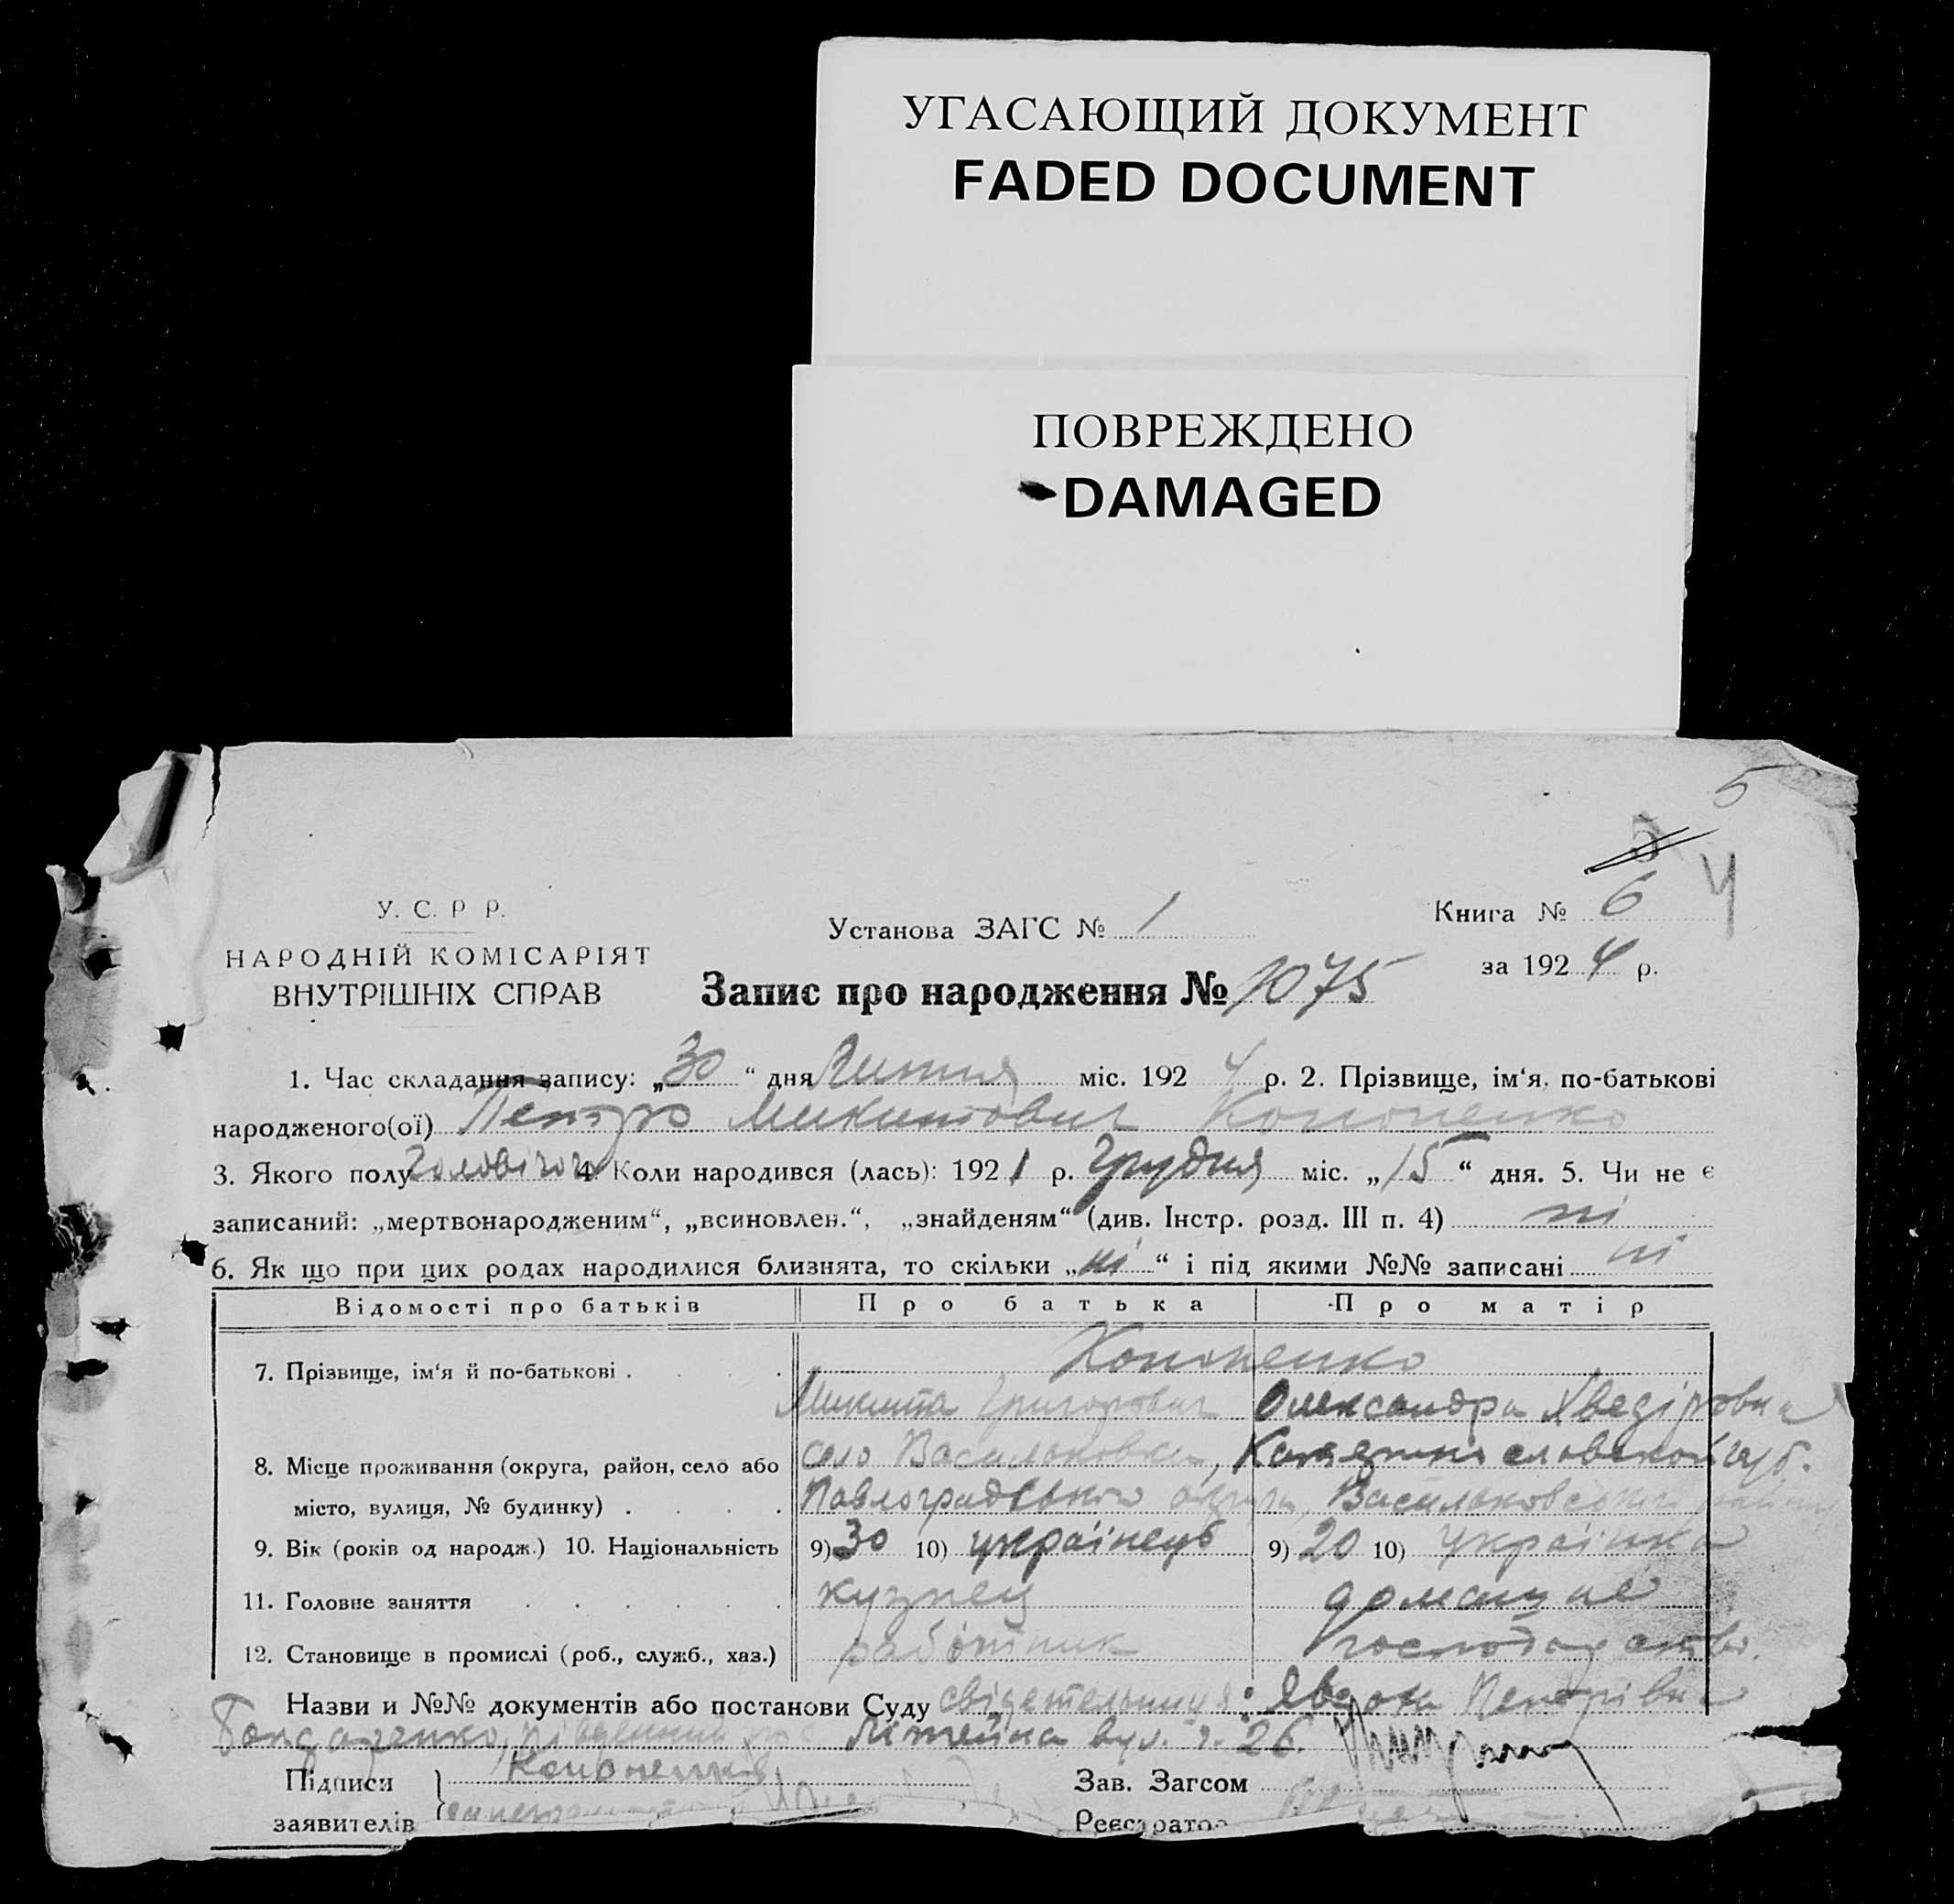 УГАСАЮЩИЙ ДОКУМЕНТ
FADED DOCUMENT
ПОВРЕЖДЕНО
DAMAGED
5
5
4
У. С. Р Р.
НАРОДНІЙ КОМІСАРІЯТ
ВНУТРІШНІХ СПРАВ
Установа ЗАГС № 1
Книга № 6
за 1924 р.
Запис про народження № 1075
1. Час складання запису: „30“ дня Липня міс. 1924 р. 2. Прізвище, ім‘я, по-батькові
народженого(ої) Петро Микитович Кононенко
3. Якого полу 4. Коли народився (лась): 1921 р. Грудня міс. „15“ дня. 5. Чи не є
записаний: „мертвонародженим“, „всиновлен.“, „знайденям“ (див. Інстр. розд. III п. 4) ні
6. Як що при цих родах народилися близнята, то скільки „ні“ і під якими №№ записані ні
Відомості про батьків Про батька Про матір
7. Прізвище, ім‘я й по-батькові . . . . Кононенко
Микита Григорович Олександра Хведіровна
8. Місце проживання (округа, район, село або село Васильковка, губ.
місто, вулиця, № будинку) . . . . Павлоградського округи, Васильковського району
9. Вік (років од народж.) 10. Національність 9) 30 10) українець 9) 20 10) українка
11. Головне заняття . . . . . . кузнец домашнє
12. Становище в промислі (роб., служб., хаз.) работник господарство.
Назви и №№ документів або постанови Суду Петрівна
Літейна вул. 26.
Підписи Кононенко Зав. Загсом
заявителів Реєстратор